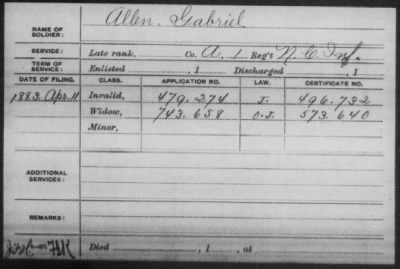 NAME OF SOLDIER: Allen, Gabriel
SERVICE: Late rank, Co. A, 1 Reg't N. C. Inf.
TERM OF SERVICE: Enlisted , 1 Discharged , 1
DATE OF FILING. CLASS. APPLICATION NO. LAW. CERTIFICATE NO.
1883. Apr. 11 Invalid, 479.274 J. 496.732
Widow, 743.658 O.J. 573.640
Minor,
ADDITIONAL SERVICES:
REMARKS:
Died , 1 , at